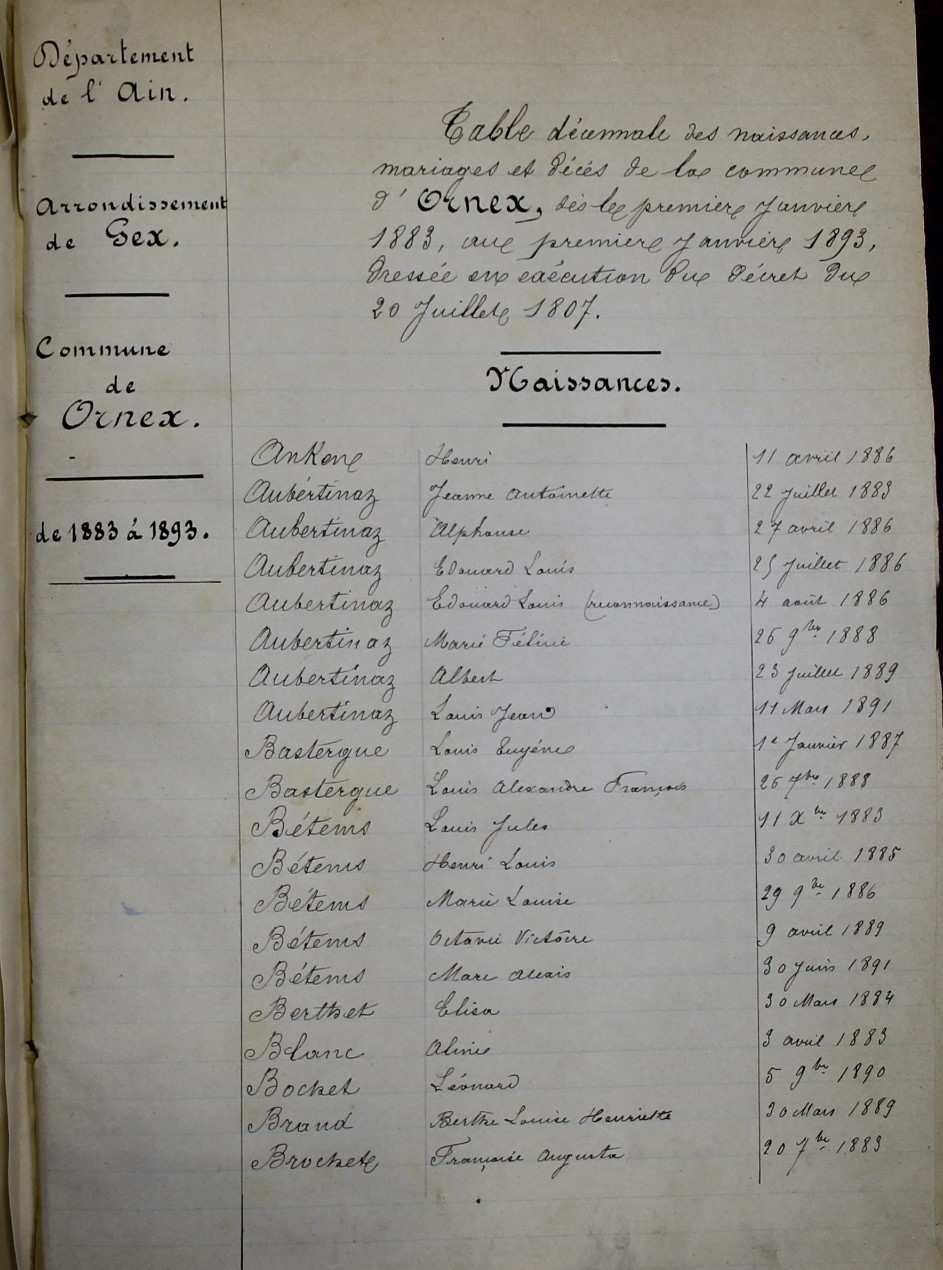 Département
de l'Ain.
Arrondissement
de Gex.
Commune
de
Ornex.
de 1883 à 1893.
Table décennale des naissances,
mariages et décés de la commune
d'Ornex, dès le premier Janvier
1883, au premier Janvier 1893,
dressée en exécution du décret du
20 Juillet 1807.
Naissances.
Ankene Henri 11 avril 1886
Aubértinaz Jeanne Antoinette 22 Juillet 1883
Aubertinaz Alphonse 27 avril 1886
Aubertinaz Edouard Louis 25 Juillet 1886
Aubertinaz Edouard Louis (reconnaissance) 4 août 1886
Aubertinaz Marie Féline 26 9bre 1888
Aubertinaz Albert 23 Juillet 1889
Aubertinaz Louis Jean 11 Mars 1891
Bastergue Louis Eugéne 1e Janvier 1887
Bastergue Louis Alexandre François 26 7bre 1888
Bétems Louis Jules 11 Xbre 1883
Bétems Henri Louis 30 avril 1885
Bétems Marie Louise 29 9bre 1886
Bétems Octavie Victoire 9 avril 1889
Bétems Marc Alexis 30 Juin 1891
Berthet Elisa 30 Mars 1884
Blanc Aline 3 avril 1883
Bochet Léonard 5 9bre 1890
Brand Berthe Louise Henriette 30 Mars 1889
Brochet Françoise Augusta 20 7bre 1883